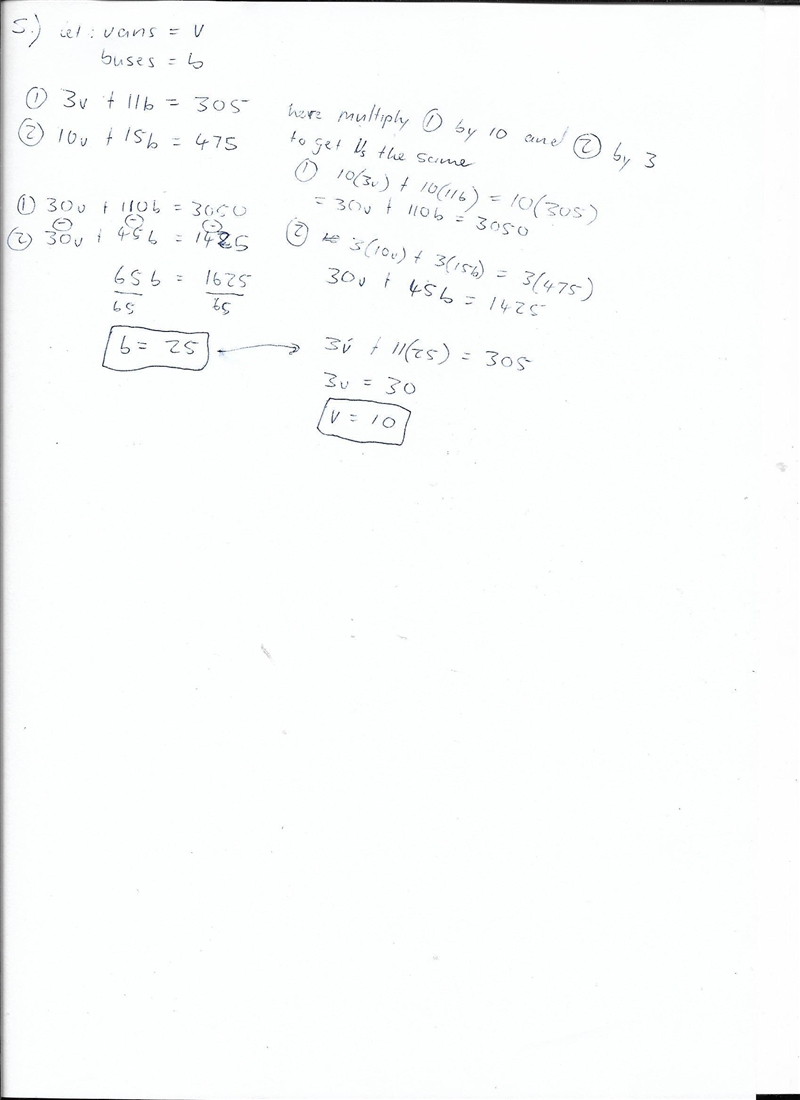 5.) let : vans = V
buses = b
① 3v + 11b = 305
② 10v + 15b = 475
here multiply ① by 10 and ② by 3
to get Vs the same
① 10(3v) + 10(11b) = 10(305)
= 30v + 110b = 3050
② 3(10v) + 3(15b) = 3(475)
30v + 45b = 1425
① 30v + 110b = 3050
⊖ ⊖ ⊖
② 30v + 45b = 1425
65b = 1625
65 65
b = 25 → 3v + 11(25) = 305
3v = 30
V = 10